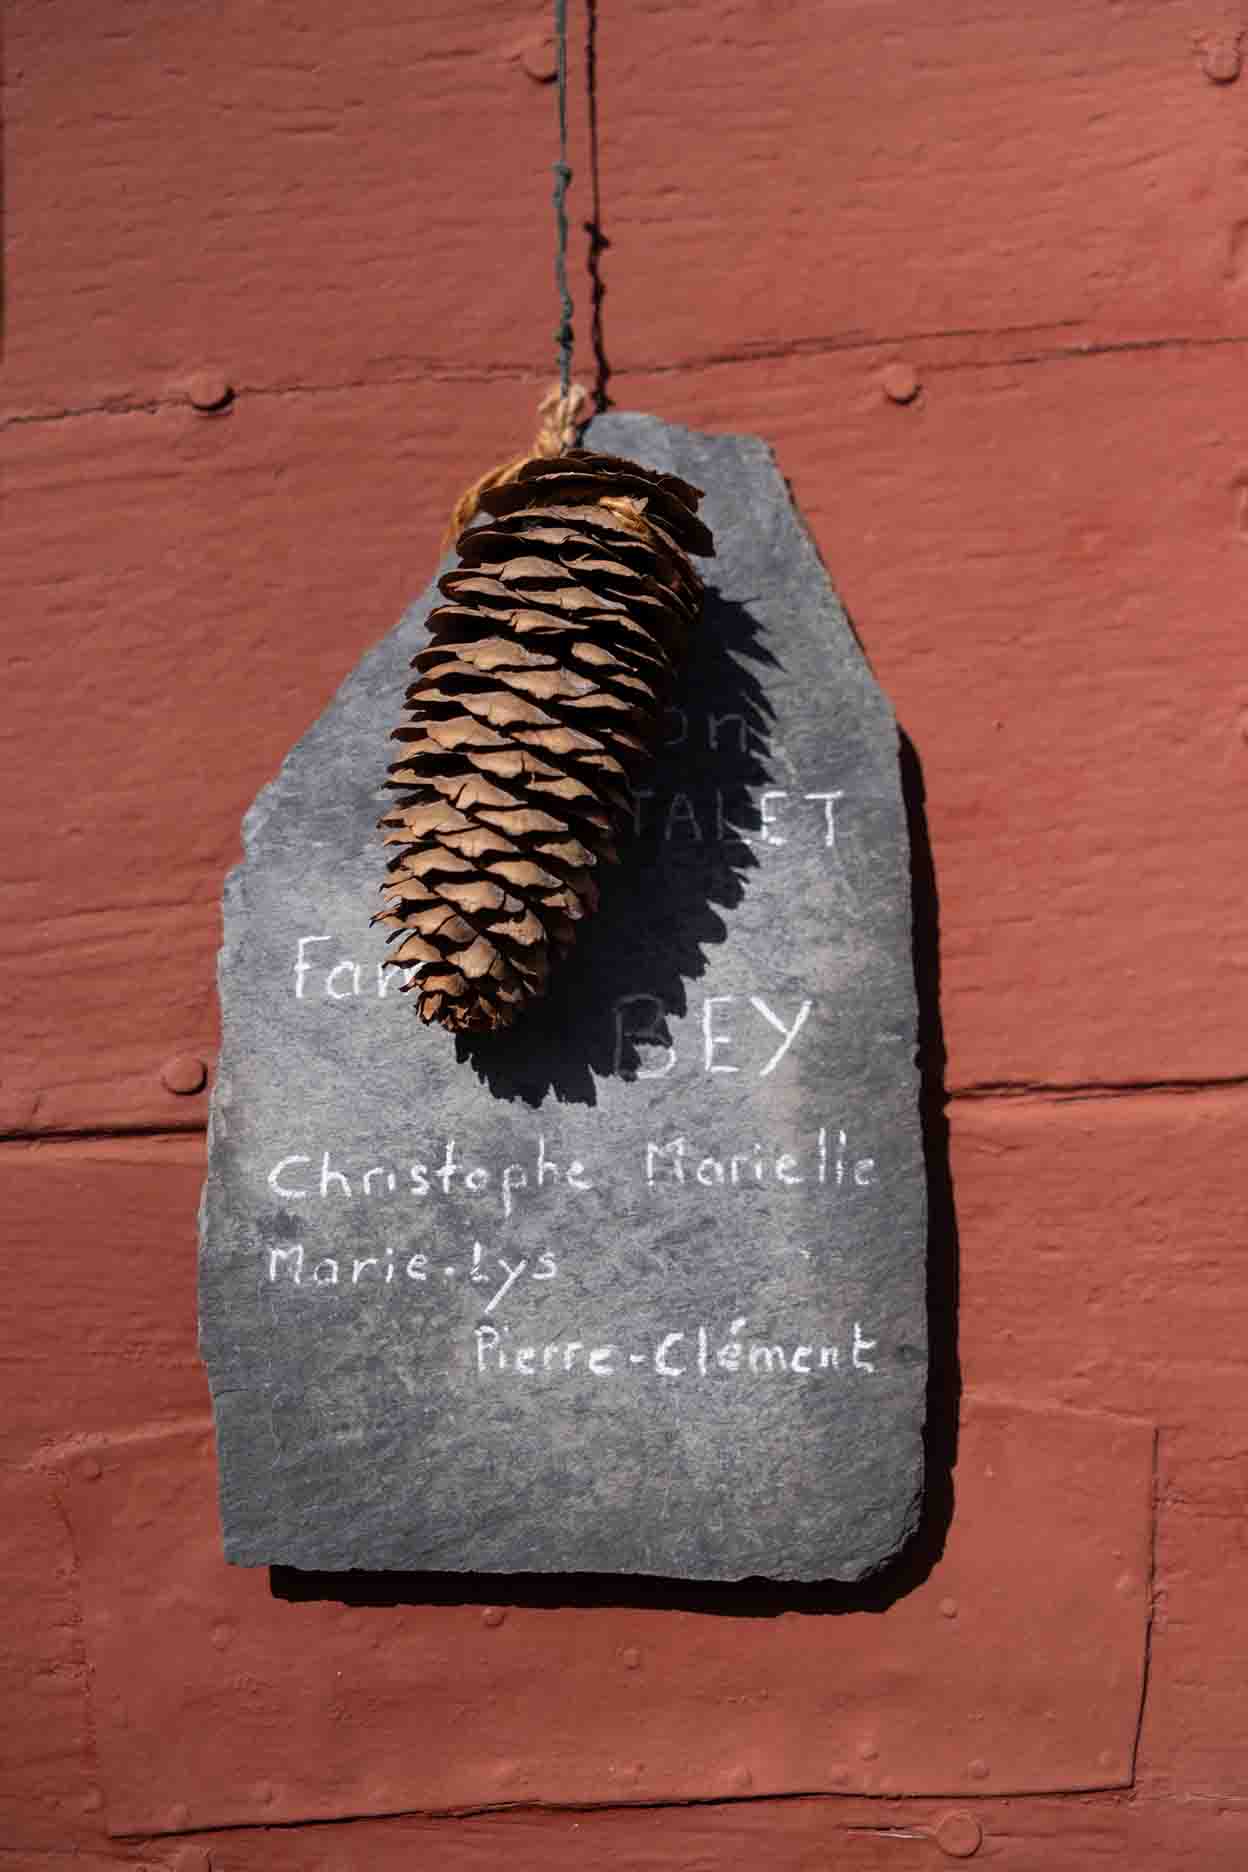 BEY
Christophe Marielle
Marie-Lys
Pierre-Clément